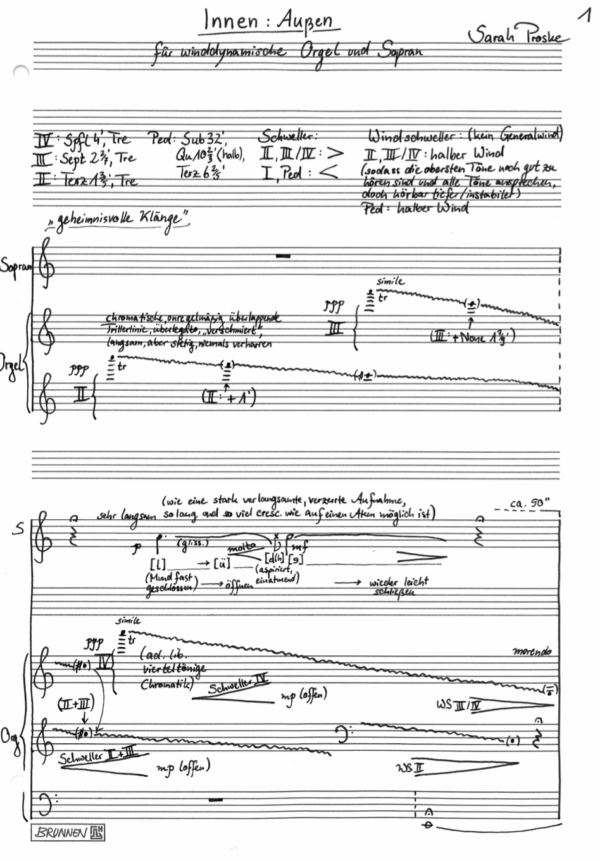 1
Innen : Außen
für winddynamische Orgel und Sopran
Sarah Proske
IV: Spfl 4', Tre
III: Sept 2 2/7', Tre
II: Terz 1 3/5', Tre
Ped: Sub 32',
Qu 10 2/3' (halb),
Terz 6 2/5'
Schweller:
II, III/IV: >
I, Ped: <
Windschweller: (kein Generalwind)
II, III/IV: halber Wind
(sodass die obersten Töne noch gut zu
hören sind und alle Töne ansprechen,
doch hörbar tiefer/instabiler)
Ped: halber Wind
"geheimnisvolle Klänge"
Sopran
simile
ppp
tr
III
(III: + None 1 7/9')
Orgel
chromatische, unregelmäßig überlappende
Trillerlinie, überlegato, "verschmiert",
langsam, aber stetig, niemals verharren
ppp
tr
II
(II: + 1')
(wie eine stark verlangsamte, verzerrte Aufnahme,
sehr langsam so lang und so viel cresc. wie auf einen Atem möglich ist)
ca. 50"
S
p
(gliss.)
molto
mf
[l] → [ü] [d(h)] [ə]
(Mund fast geschlossen) → öffnen
(aspiriert, einatmend)
→ wieder leicht schließen
simile
ppp
tr
IV
(ad. lib.
vierteltönige
Chromatik)
Schweller IV
mp (offen)
morendo
WS III/IV
(II+III)
Org
Schweller II+III
mp (offen)
WS II
BRUNNEN